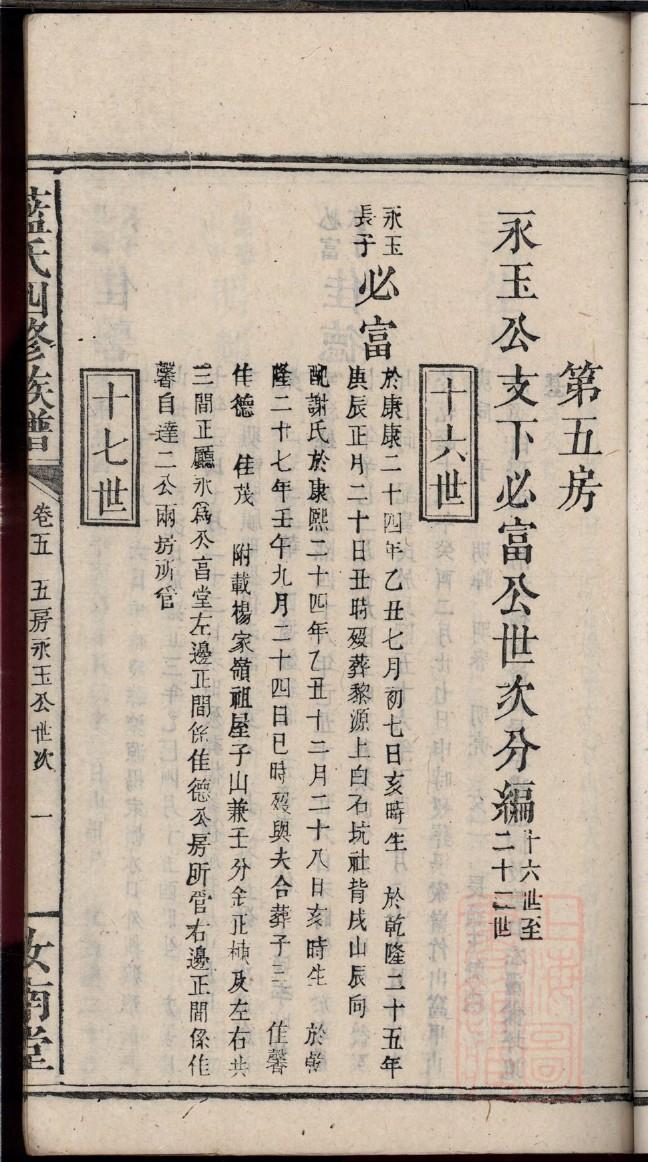 第五房
永玉公支下必富公世次分編十六世至二十三世
十六世
永玉長子必富
於康康二十四年乙丑七月初七日亥時生 於乾隆二十五年
庚辰正月二十日丑時歿葬黎源上白石坑社背戌山辰向
配謝氏於康熙二十四年乙丑十二月二十八日亥時生 於乾
隆二十七年壬午九月二十四日巳時歿與夫合葬子三 佳馨
佳德 佳茂 附載楊家嶺祖屋子山兼壬分金正棟及左右共
三間正廳永為公亯堂左邊正間係佳德公房所管右邊正間係佳
馨自達二公兩房所管
十七世
藍氏四修族譜 卷五 五房永玉公世次 一 汝南堂